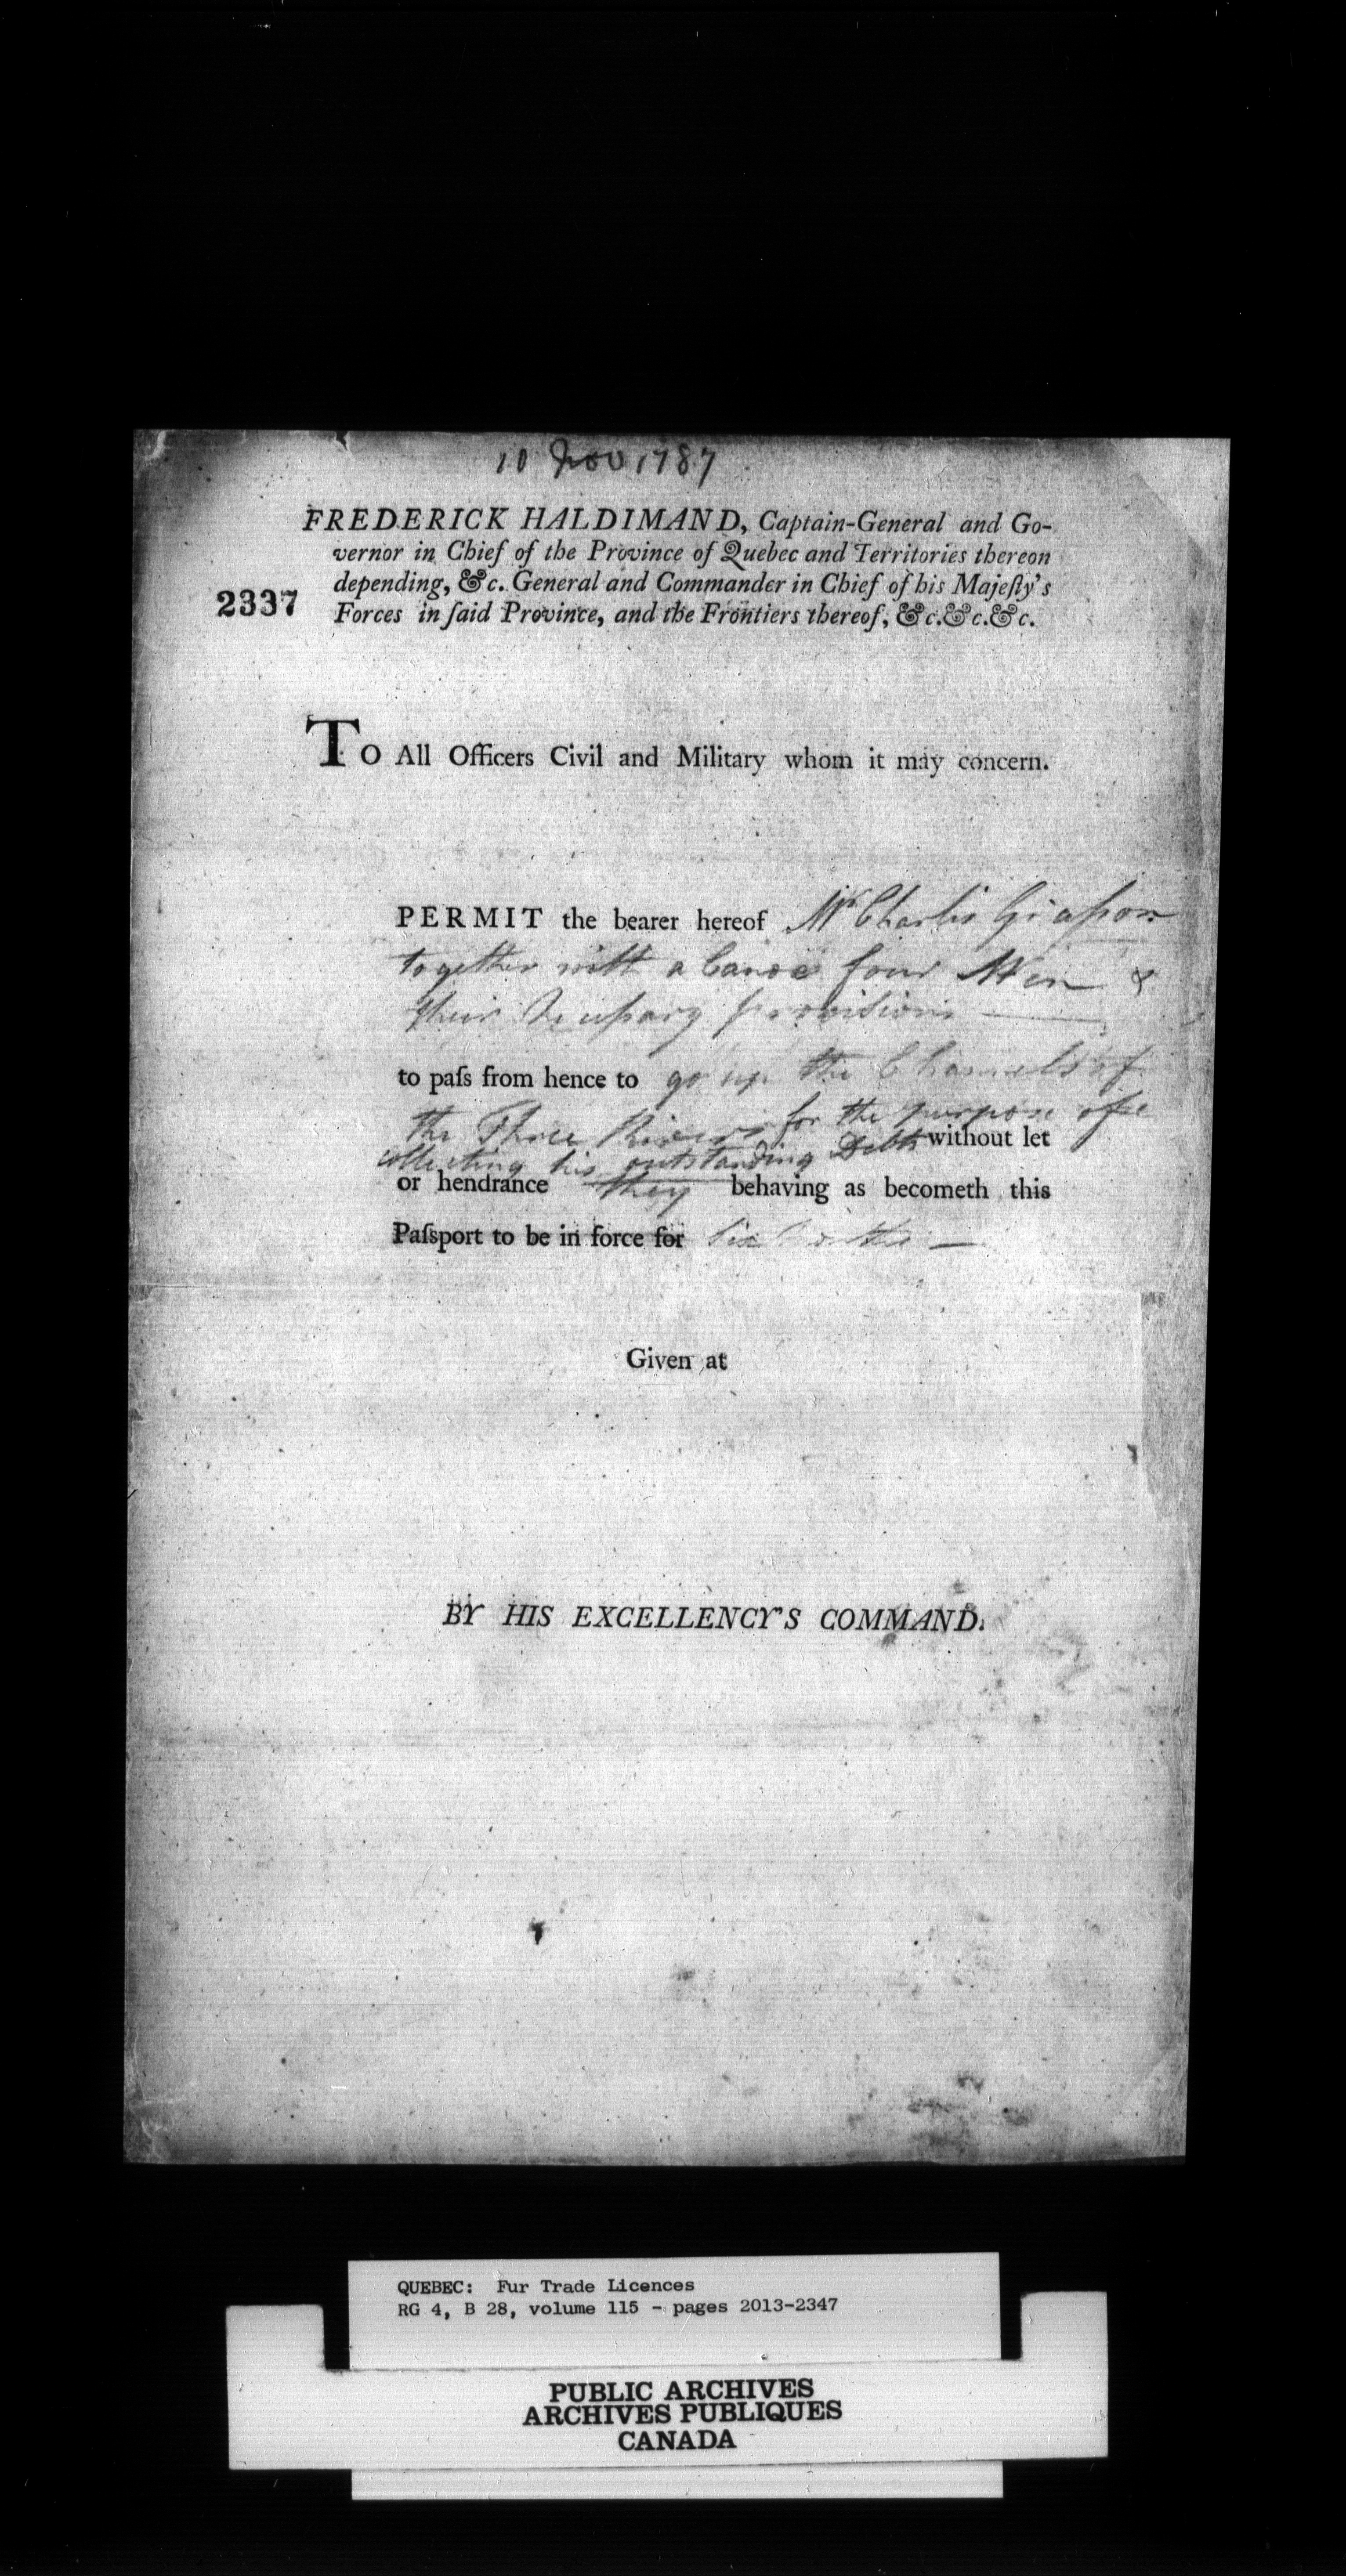 10 Nov 1787
FREDERICK HALDIMAND, Captain-General and Go-
vernor in Chief of the Province of Quebec and Territories thereon
depending, &c. General and Commander in Chief of his Majeſty's
2337
Forces in ſaid Province, and the Frontiers thereof, &c.&c.&c.
To All Officers Civil and Military whom it may concern.
PERMIT the bearer hereof Mr Charles Giaſson
together with a Canoe four Men &
their Neceſsary proviſions
to paſs from hence to go up the Channels of
the Three Rivers for the purpose of
collecting his outstanding Debts without let
or hendrance they behaving as becometh this
Paſsport to be in force for Six Months
Given at
BY HIS EXCELLENCY'S COMMAND.
QUEBEC: Fur Trade Licences
RG 4, B 28, volume 115 - pages 2013-2347
PUBLIC ARCHIVES
ARCHIVES PUBLIQUES
CANADA